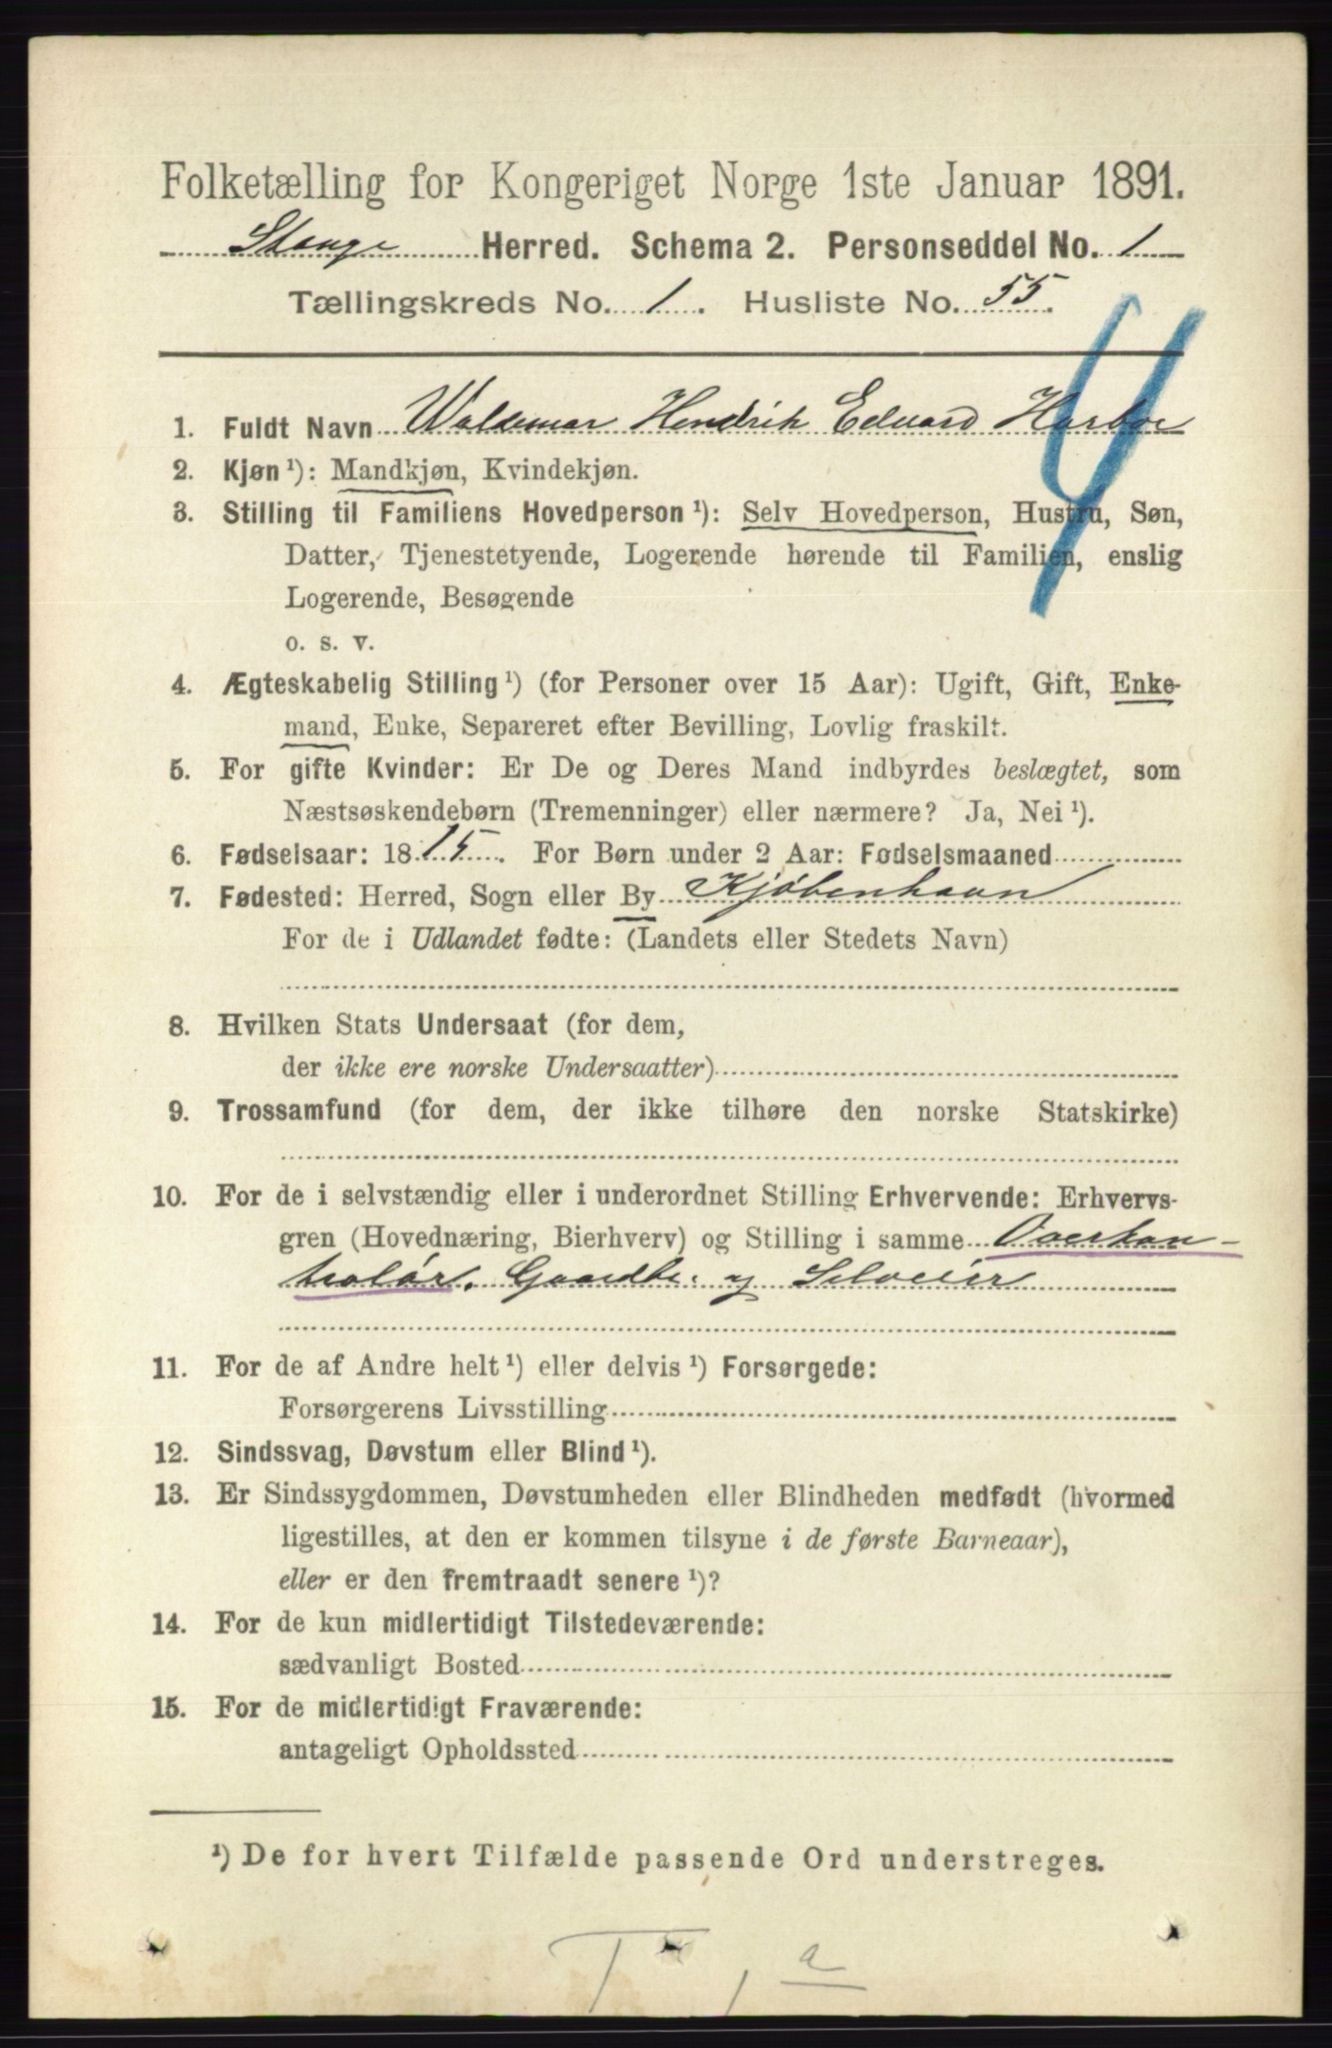 Folketælling for Kongeriget Norge 1ste Januar 1891.
Stange Herred. Schema 2. Personseddel No. 1
Tællingskreds No. 1. Husliste No. 55.
4
1. Fuldt Navn Waldemar Hendrik Edvard Harboe
2. Kjøn ¹): Mandkjøn, Kvindekjøn.
3. Stilling til Familiens Hovedperson ¹): Selv Hovedperson, Hustru, Søn,
Datter, Tjenestetyende, Logerende hørende til Familien, enslig
Logerende, Besøgende
o. s. v.
4. Ægteskabelig Stilling ¹) (for Personer over 15 Aar): Ugift, Gift, Enke-
mand, Enke, Separeret efter Bevilling, Lovlig fraskilt.
5. For gifte Kvinder: Er De og Deres Mand indbyrdes beslægtet, som
Næstsøskendebørn (Tremenninger) eller nærmere? Ja, Nei ¹).
6. Fødselsaar: 1815. For Børn under 2 Aar: Fødselsmaaned
7. Fødested: Herred, Sogn eller By Kjöbenhavn
For de i Udlandet fødte: (Landets eller Stedets Navn)
8. Hvilken Stats Undersaat (for dem,
der ikke ere norske Undersaatter)
9. Trossamfund (for dem, der ikke tilhøre den norske Statskirke)
10. For de i selvstændig eller i underordnet Stilling Erhvervende: Erhvervs-
gren (Hovednæring, Bierhverv) og Stilling i samme Overkon-
trolör. Gaardbr. og Selveier
11. For de af Andre helt ¹) eller delvis ¹) Forsørgede:
Forsørgerens Livsstilling
12. Sindssvag, Døvstum eller Blind ¹).
13. Er Sindssygdommen, Døvstumheden eller Blindheden medfødt (hvormed
ligestilles, at den er kommen tilsyne i de første Barneaar),
eller er den fremtraadt senere ¹)?
14. For de kun midlertidigt Tilstedeværende:
sædvanligt Bosted
15. For de midlertidigt Fraværende:
antageligt Opholdssted
¹) De for hvert Tilfælde passende Ord understreges.